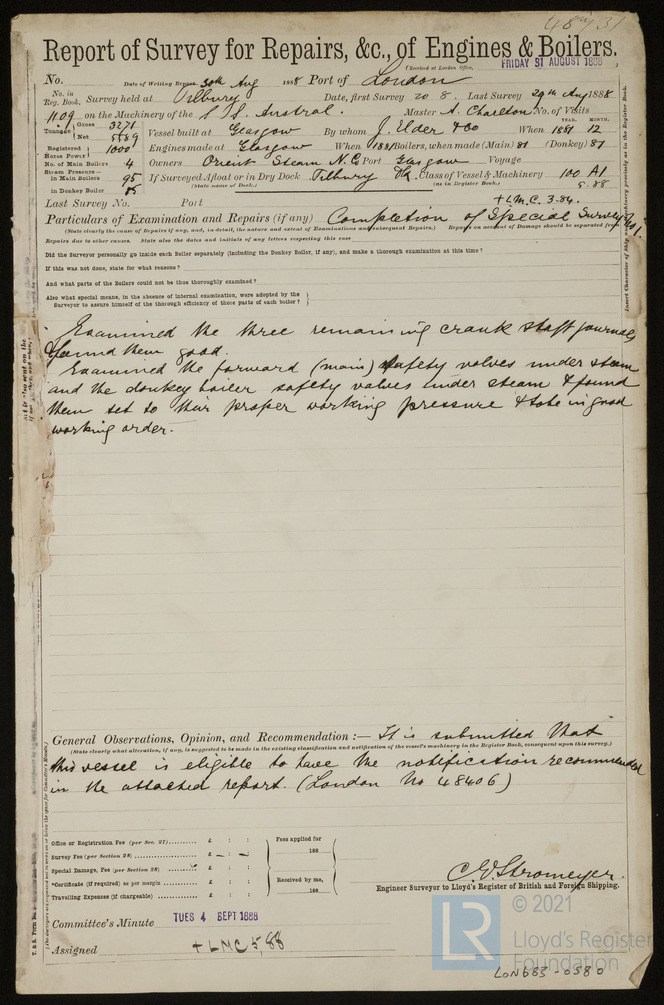 48431
Report of Survey for Repairs, &c., of Engines & Boilers.
(Received at London Office, FRIDAY 31 AUGUST 1888
No. Date of Writing Report 30th Aug 1888 Port of London
No. in Reg. Book. Survey held at Tilbury Date, first Survey 20 8. Last Survey 29th Aug 1888
1109 on the Machinery of the S.S. Austral. Master A. Charlton No. of Visits
Tonnage Gross 3271 Net 5589 Vessel built at Glasgow By whom J. Elder & Co When 1881 YEAR. MONTH. 12
Registered Horse Power 1000 Engines made at Glasgow When 1881 Boilers, when made (Main) 81 (Donkey) 87
No. of Main Boilers 4 Owners Orient Steam N. Co Port Glasgow Voyage
Steam Pressure in Main Boilers 95 If Surveyed Afloat or in Dry Dock Tilbury Dk. Class of Vessel & Machinery 100 A1
in Donkey Boiler 85 (State name of Dock.) (as in Register Book.) 5.88
Last Survey No. Port + L.M.C. 3.84.
Particulars of Examination and Repairs (if any) Completion of Special Survey No 1.
(State clearly the cause of Repairs if any, and, in detail, the nature and extent of Examinations and subsequent Repairs.) Repairs on account of Damage should be separated from
Repairs due to other causes. State also the dates and initials of any letters respecting this case
Did the Surveyor personally go inside each Boiler separately (including the Donkey Boiler, if any), and make a thorough examination at this time?
If this was not done, state for what reasons?
And what parts of the Boilers could not be thus thoroughly examined?
Also what special means, in the absence of internal examination, were adopted by the
Surveyor to assure himself of the thorough efficiency of those parts of each boiler?
Examined the three remaining crank shaft journals
& found them good.
Examined the forward (main) safety valves under steam
and the donkey boiler safety valves under steam & found
them set to their proper working pressure & to be in good
working order.
General Observations, Opinion, and Recommendation :— It is submitted that
(State clearly what alteration, if any, is suggested to be made in the existing classification and notification of the vessel's machinery in the Register Book, consequent upon this survey.)
this vessel is eligible to have the notification recommended
in the attached report. (London No 48406)
Office or Registration Fee (per Sec. 27) £ : : Fees applied for
Survey Fee (per Section 28) £ – : – : 188
Special Damage, Fee (per Section 28) £ : :
*Certificate (if required) as per margin £ : : Received by me,
Travelling Expenses (if chargeable) £ : : 188
C. E. Stromeyer.
Engineer Surveyor to Lloyd's Register of British and Foreign Shipping.
Committee's Minute TUES 4 SEPT 1888
Assigned + LMC 5,88
LR © 2021
Lloyd's Register
Foundation
LON683-0580